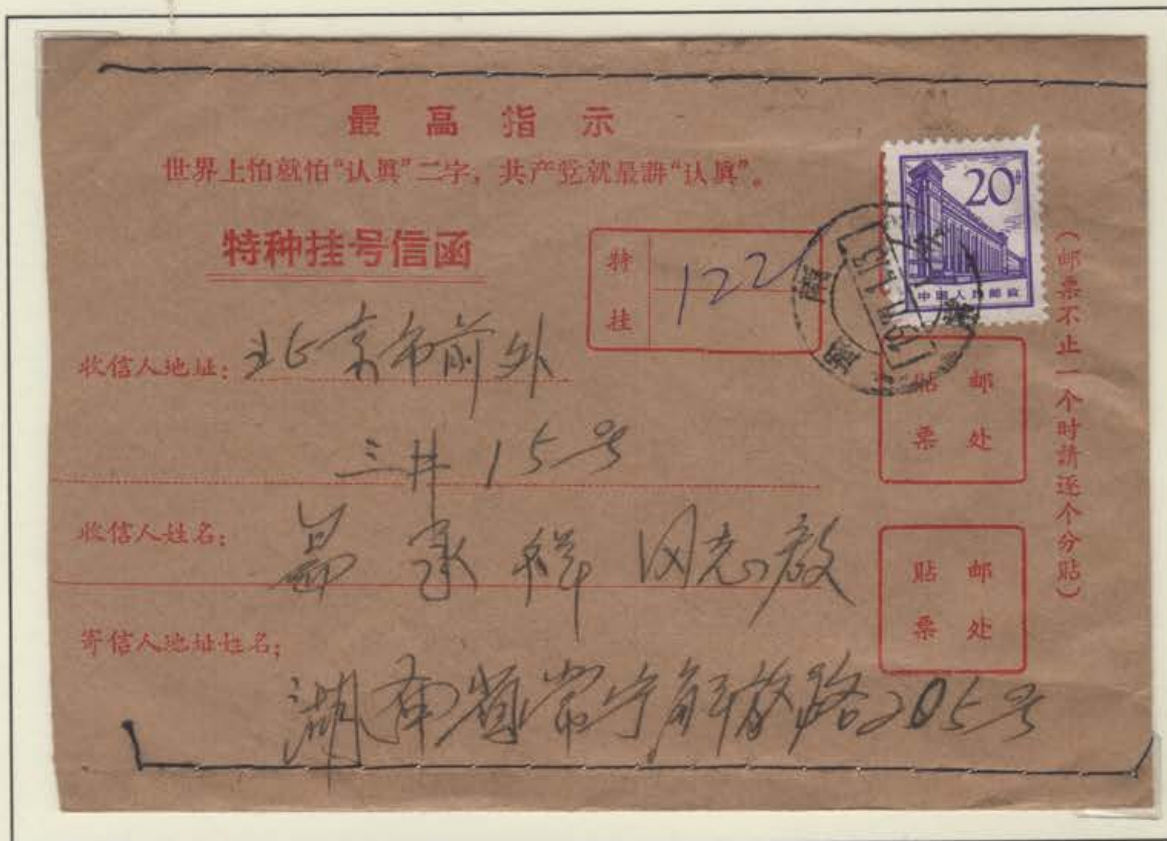 最高指示
世界上怕就怕“认眞”二字，共产党就最讲“认眞”。
特种挂号信函
特挂
122
20分
中国人民邮政
湖南
1971.1.13
(邮票不止一个时請逐个分貼)
收信人地址：北京市前外
三井15号
邮票
貼处
收信人姓名：承祥同志啟
邮票
貼处
寄信人地址姓名；
湖南省常宁解放路205号